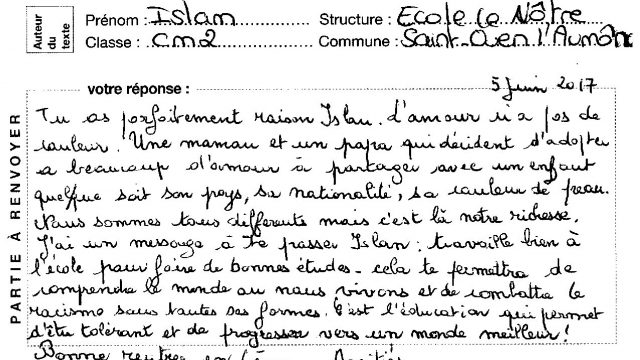 Auteur du texte
Prénom : Islam Structure : Ecole Le Nôtre
Classe : CM2 Commune : Saint-Ouen l'Aumône
PARTIE À RENVOYER
votre réponse : 5 juin 2017
Tu as parfaitement raison Islam. L'amour n'a pas de
couleur. Une maman et un papa qui décident d'adopter
a beaucoup d'amour à partager avec un enfant
quelque soit son pays, sa nationalité, sa couleur de peau.
Nous sommes tous différents mais c'est là notre richesse.
J'ai un message à te passer Islam : travaille bien à
l'école pour faire de bonnes études - cela te permettra de
comprendre le monde où nous vivons et de combattre le
racisme sous toutes ses formes. C'est l'éducation qui permet
d'être tolérant et de progresser vers un monde meilleur !
Bonne rentrée